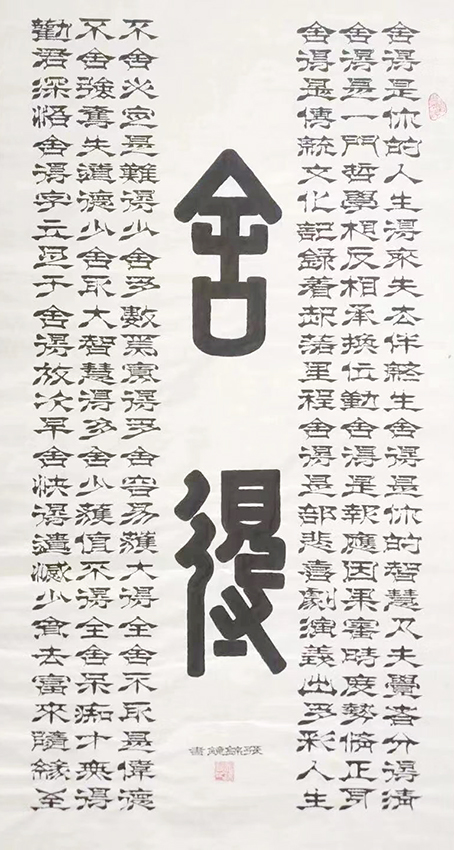 舍得是你的人生得來失去伴終生舍得是你的智慧凡夫覺者分得清
舍得是一門哲學相反相承換位動舍得是報應因果審時度勢倚正身
舍得是傳統文化記錄着起落里程舍得是部悲喜劇演義出多彩人生
舍得
不舍必定是難得少舍多數篤實得多舍容易獲大得全舍不取是偉德
不舍強奪失道德少舍取大智慧得多舍少獲值不得全舍呆痴才無得
勸君深悟舍得字立足于舍得放次早舍快得遺減少貧去富來隨緣至
書